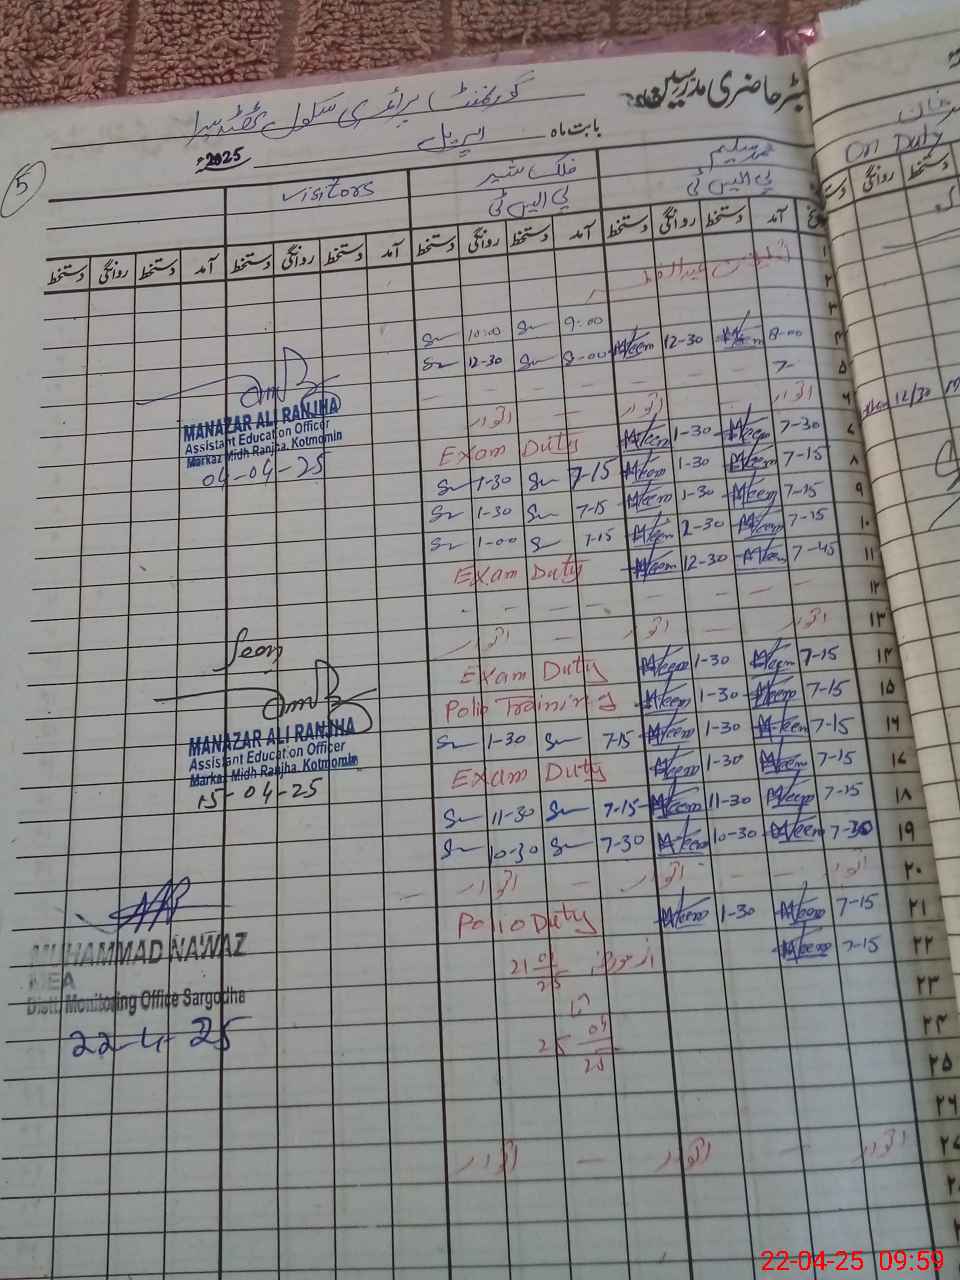 رجسٹر حاضری مدرسین
گورنمنٹ پرائمری سکول
بابت ماہ اپریل 2025ء
5
محمد سلیم فلک شیر visitors
پی ایس ٹی پی ایس ٹی
تاریخ آمد دستخط روانگی دستخط آمد دستخط روانگی دستخط آمد دستخط روانگی دستخط آمد دستخط روانگی دستخط
۱
۲ تعطیلات عید الفطر
۳ 9:00 10:00
۴ 8-00 12-30 8-00 12-30
۵ 7-
۶ اتوار اتوار اتوار
۷ 7-30 1-30 Exam Duty
۸ 7-15 1-30 7-15 1-30
۹ 7-15 1-30 7-15 1-30
۱۰ 7-15 2-30 7-15 1-00
۱۱ 7-45 12-30 Exam Duty
۱۲
۱۳ اتوار اتوار اتوار
۱۴ 7-15 1-30 Exam Duty
۱۵ 7-15 1-30 Polio Training
۱۶ 7-15 1-30 7-15 1-30
۱۷ 7-15 1-30 Exam Duty
۱۸ 7-15 11-30 7-15 11-30
۱۹ 7-30 10-30 7-30 10-30
۲۰ اتوار اتوار اتوار
۲۱ 7-15 1-30 Polio Duty
۲۲ 7-15 از مورخہ 21 04/25
۲۳ تا
۲۴ 25 04/25
۲۵
۲۶
۲۷ اتوار اتوار اتوار
MANAZAR ALI RANJHA
Assistant Education Officer
Markaz Midh Ranjha, Kotmomin
04-04-25
Seen
MANAZAR ALI RANJHA
Assistant Education Officer
Markaz Midh Ranjha, Kotmomin
15-04-25
MUHAMMAD NAWAZ
MEA
Distt. Monitoring Office Sargodha
22-4-25
On Duty
روانگی دستخط
12/30
22-04-25 09:59